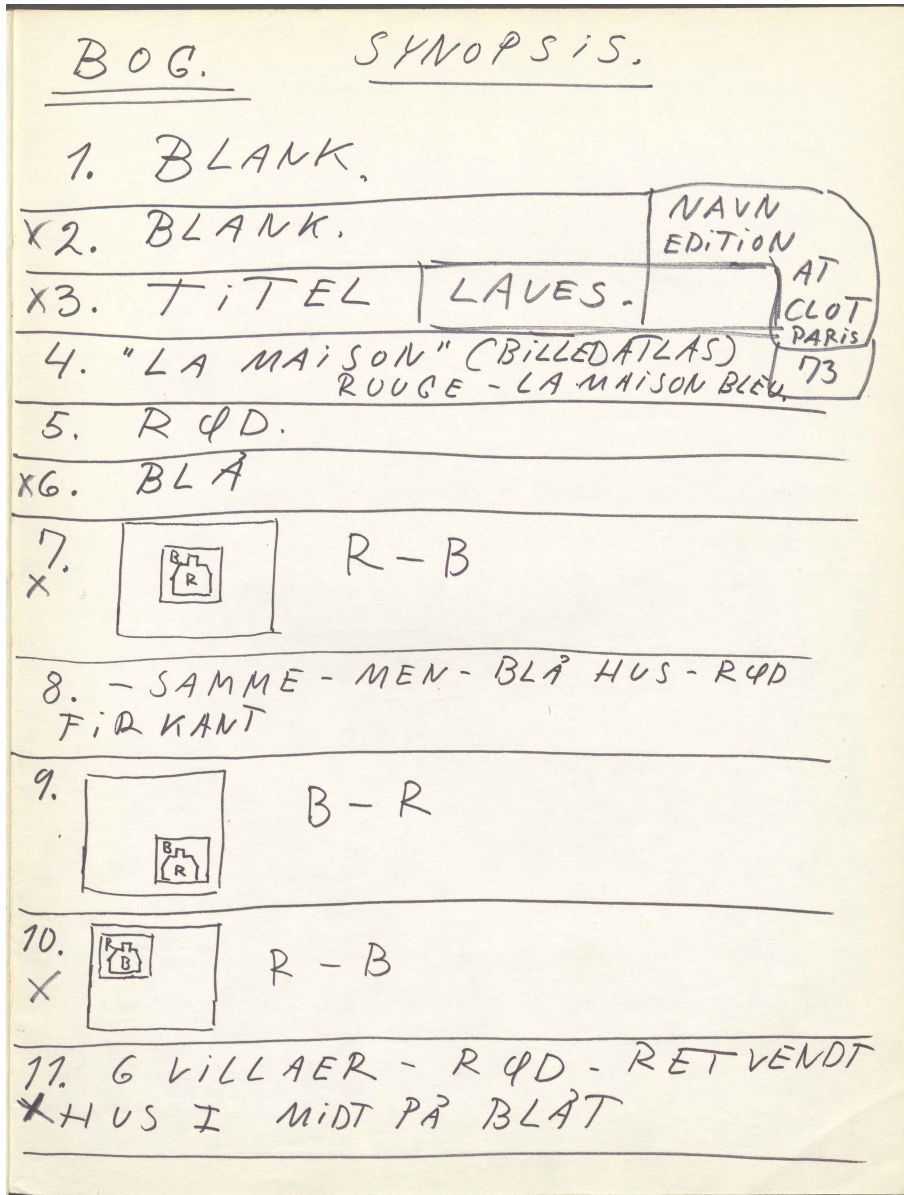 BOG. SYNOPSIS.
1. BLANK.
X2. BLANK.
NAVN
EDITION
AT
CLOT
PARIS
73
X3. TITEL | LAVES.
4. "LA MAISON" (BILLEDATLAS)
ROUGE - LA MAISON BLEU.
5. RØD.
X6. BLÅ
7. R - B
X
B
R
8. - SAMME - MEN - BLÅ HUS - RØD
FIRKANT
9. B - R
B
R
10. R - B
X
R
B
11. 6 VILLAER - RØD - RETVENDT
X HUS I MIDT PÅ BLÅT